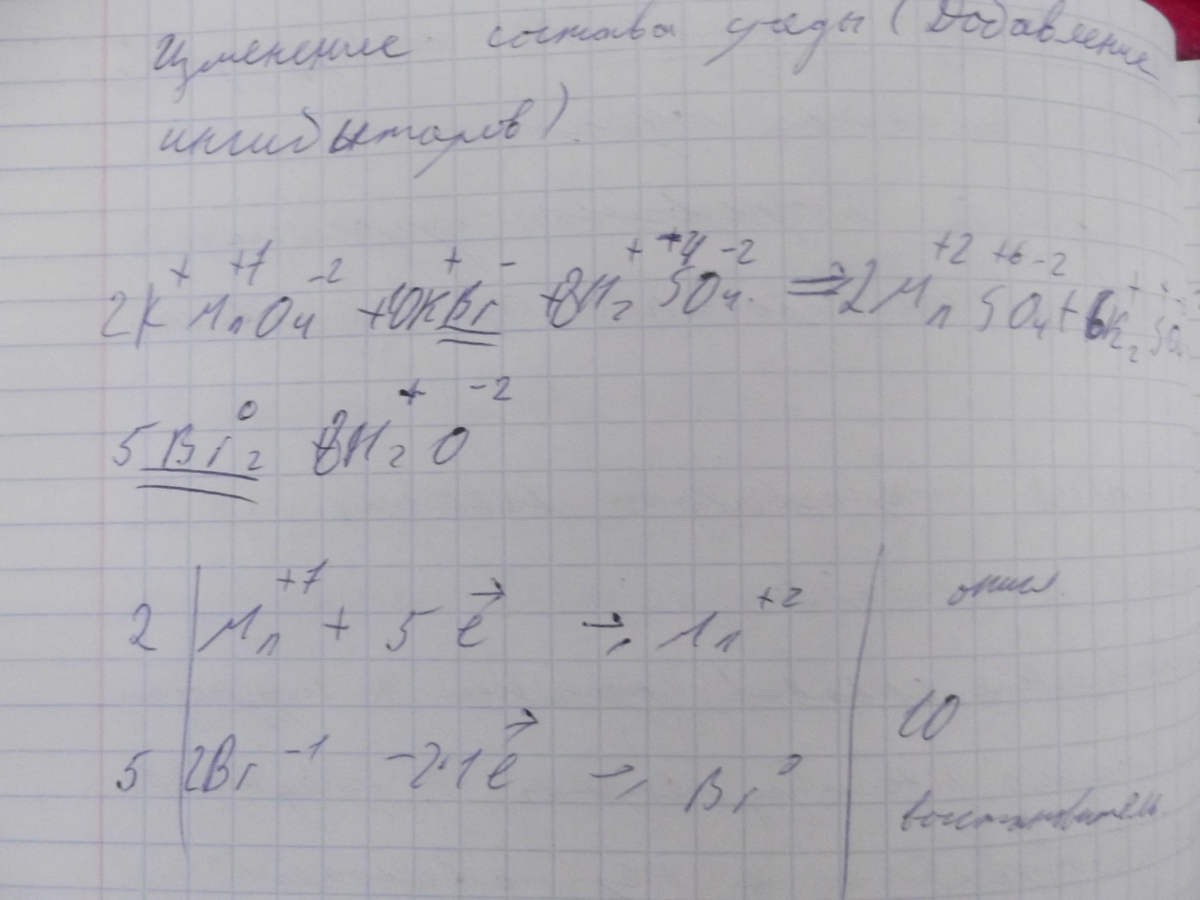 Изменение состава среды (Добавление
ингибыторов).
+ +7 -2 + - + +4 -2 +2 +6 -2 + +
2KMnO4 + 10KBr + 8H2SO4 => 2MnSO4 + 6K2SO4
0 + -2
5Br2 8H2O
2 | Mn+7 + 5e → Mn+2 | окисл.
10
5 | 2Br-1 -2·1e → Br0 | восстановитель